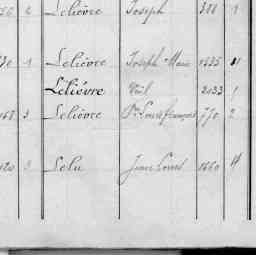 6 Lelièvre Joseph 388 1
1 Lelièvre Joseph Marie 1535 11
Lelièvre Noël 2033 1
3 Lelièvre Pre Louis François 770 2
3 Lelu Jean Louis 1660 4